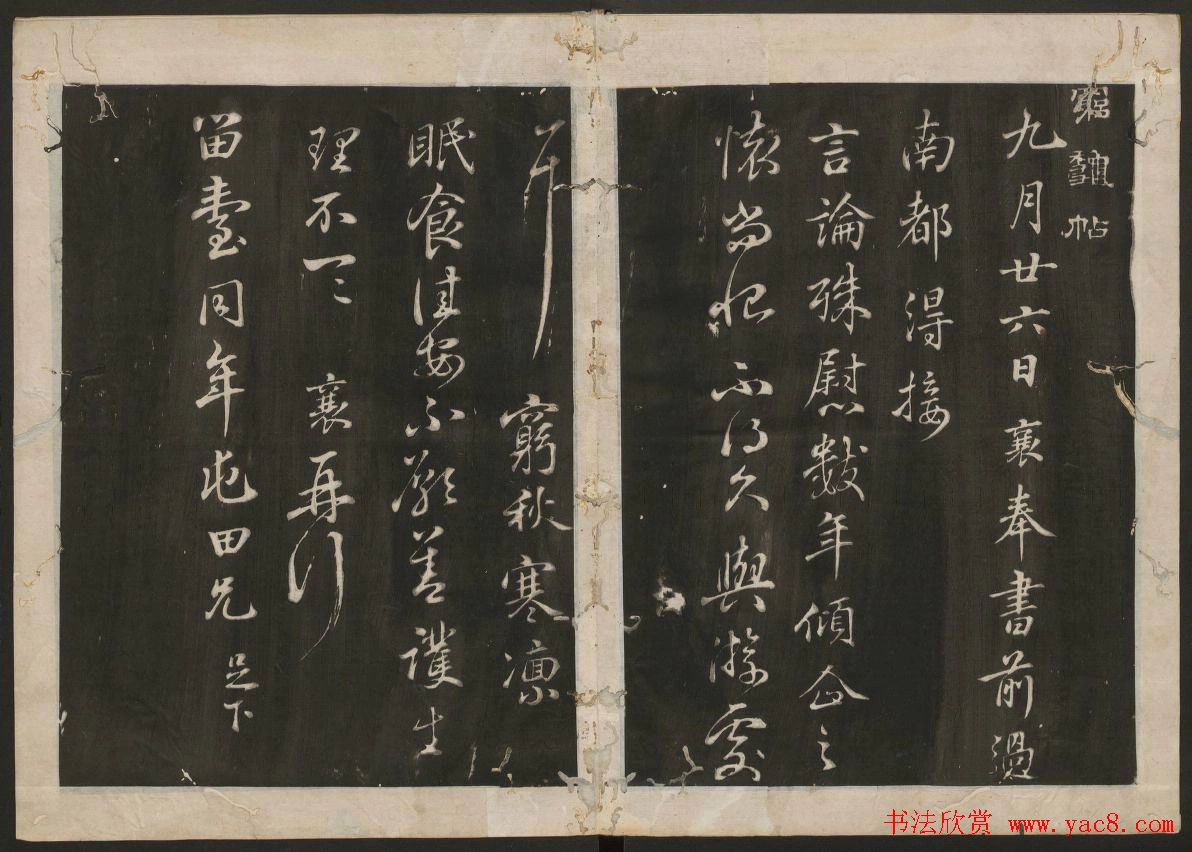 帖
九月廿六日襄奉書前過
南都得接
言論殊慰數年傾企之
懷尚恨不得久與游處
耳 窮秋寒凛
眠食佳安不願善護生
理不一一 襄再拜
留臺同年屯田兄 足下
书法欣赏 www.yac8.com